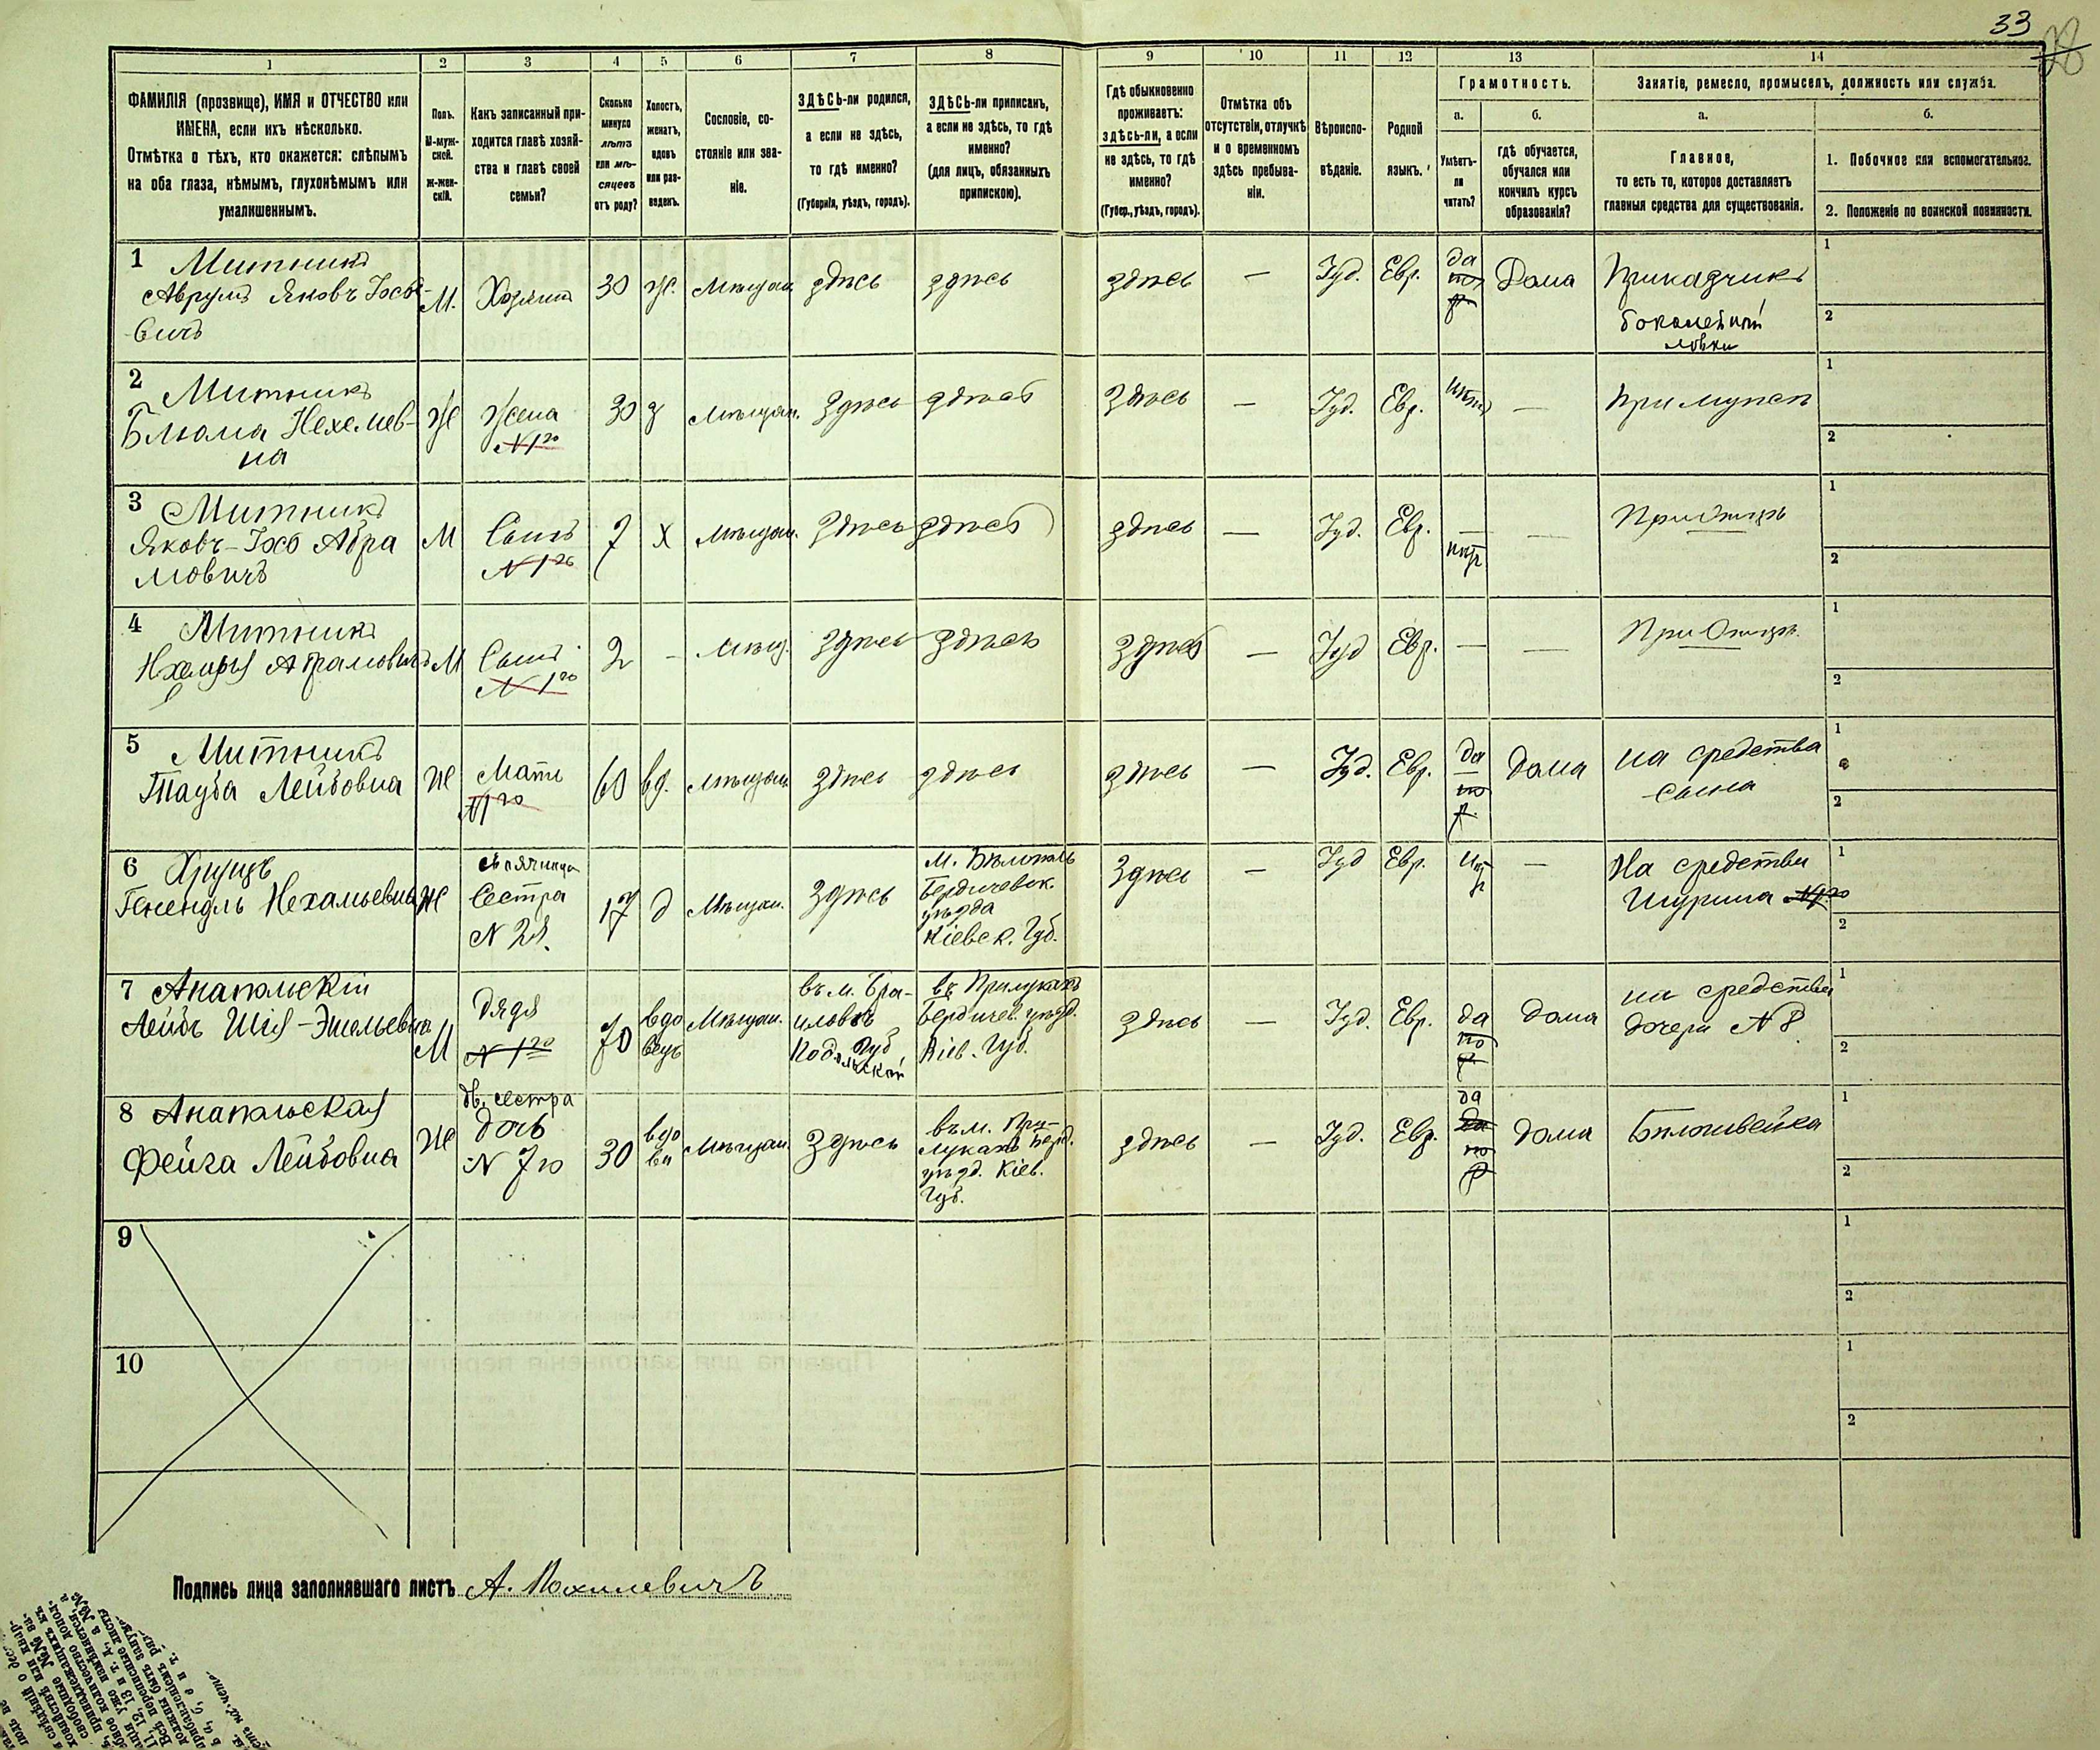 33
28
1
2
3
4
5
6
7
8
9
10
11
12
13
14
ФАМИЛІЯ (прозвище), ИМЯ и ОТЧЕСТВО или
ИМЕНА, если ихъ нѣсколько.
Отмѣтка о тѣхъ, кто окажется: слѣпымъ
на оба глаза, нѣмымъ, глухонѣмымъ или
умалишеннымъ.
Полъ.
М-муж-
ской.
ж-жен-
скій.
Какъ записанный при-
ходится главѣ хозяй-
ства и главѣ своей
семьи?
Сколько
минуло
лѣтъ
или мѣ-
сяцевъ
отъ роду?
Холостъ,
женатъ,
вдовъ
или раз-
веденъ.
Сословіе, со-
стояніе или зва-
ніе.
ЗДѢСЬ-ли родился,
а если не здѣсь,
то гдѣ именно?
(Губернія, уѣздъ, городъ).
ЗДѢСЬ-ли приписанъ,
а если не здѣсь, то гдѣ
именно?
(для лицъ, обязанныхъ
припискою).
Гдѣ обыкновенно
проживаетъ:
здѣсь-ли, а если
не здѣсь, то гдѣ
именно?
(Губер., уѣздъ, городъ).
Отмѣтка объ
отсутствіи, отлучкѣ
и о временномъ
здѣсь пребыва-
ніи.
Вѣроиспо-
вѣданіе.
Родной
языкъ.
Грамотность.
а.
Умѣетъ-
ли
читать?
б.
гдѣ обучается,
обучался или
кончилъ курсъ
образованія?
Занятіе, ремесло, промыселъ, должность или служба.
а.
Главное,
то есть то, которое доставляетъ
главныя средства для существованія.
б.
1. Побочное или вспомогательное.
2. Положеніе по воинской повинности.
1 Митникъ
Аврумъ Яковъ Іосе-
вичъ
М.
Хозяинъ
30
ж.
Мѣщан
здѣсь
здѣсь
здѣсь
—
Іуд.
Евр.
да
по
р
Дома
Приказчикъ
бокалейной
лавки
1
2
2 Митникъ
Блюма Нехемев-
на
Ж
Жена
N 1го
30
з
Мѣщан.
Здѣсь
здѣсь
Здѣсь
—
Іуд.
Евр.
нѣтъ
—
При мужѣ
1
2
3 Митникъ
Яковъ-Іосъ Абра
мовичъ
М
Сынъ
N 1го
7
Х
мѣщан.
Здѣсь
здѣсь
здѣсь
—
Іуд.
Евр.
—
нѣтъ
—
При отцѣ
1
2
4 Митникъ
Нхемья Абрамовичъ
М
Сынъ
N 1го
2
-
Мѣщ.
Здѣсь
здѣсь
Здѣсь
—
Іуд
Евр.
—
—
При Отцѣ
1
2
5 Митникъ
Тауба Лейбовна
Ж
Мать
N 1го
60
вд.
мѣщан
здѣсь
здѣсь
здѣсь
—
Іуд.
Евр.
да
по
р.
Дома
на средства
сына
1
2
6 Хрущъ
Генендль Нехамьевна
Ж
свояченица
Сестра
N 2й.
17
д
Мѣщан.
Здѣсь
м. Бѣлополь
Бердичевск.
уѣзда
Кіевск. Губ.
Здѣсь
—
Іуд
Евр.
нѣт
—
На средства
Шурина N 1го
1
2
7 Анапольскій
Лейбъ Шія-Эмильевич
М
Дядя
N 1го
70
вдо
вецъ
Мѣщан.
въ м. Бра-
иловъ
Губ
Подольской
въ Прилукахъ
Бердичев. уѣзд.
Кіев. Губ.
здѣсь
—
Іуд.
Евр.
да
по
р
дома
на средства
дочери N 8
1
2
8 Анапольская
Фейга Лейбовна
Ж
дв. сестра
дочь
N 7го
30
вдо
ва
Мѣщан.
Здѣсь
въ м. При-
лукахъ Берд.
уѣзд. Кіев.
Губ.
здѣсь
—
Іуд.
Евр.
да
да
по
р
дома
Бѣлошвейка
1
2
9
1
2
10
1
2
Подпись лица заполнявшаго листъ А. Похилевичъ